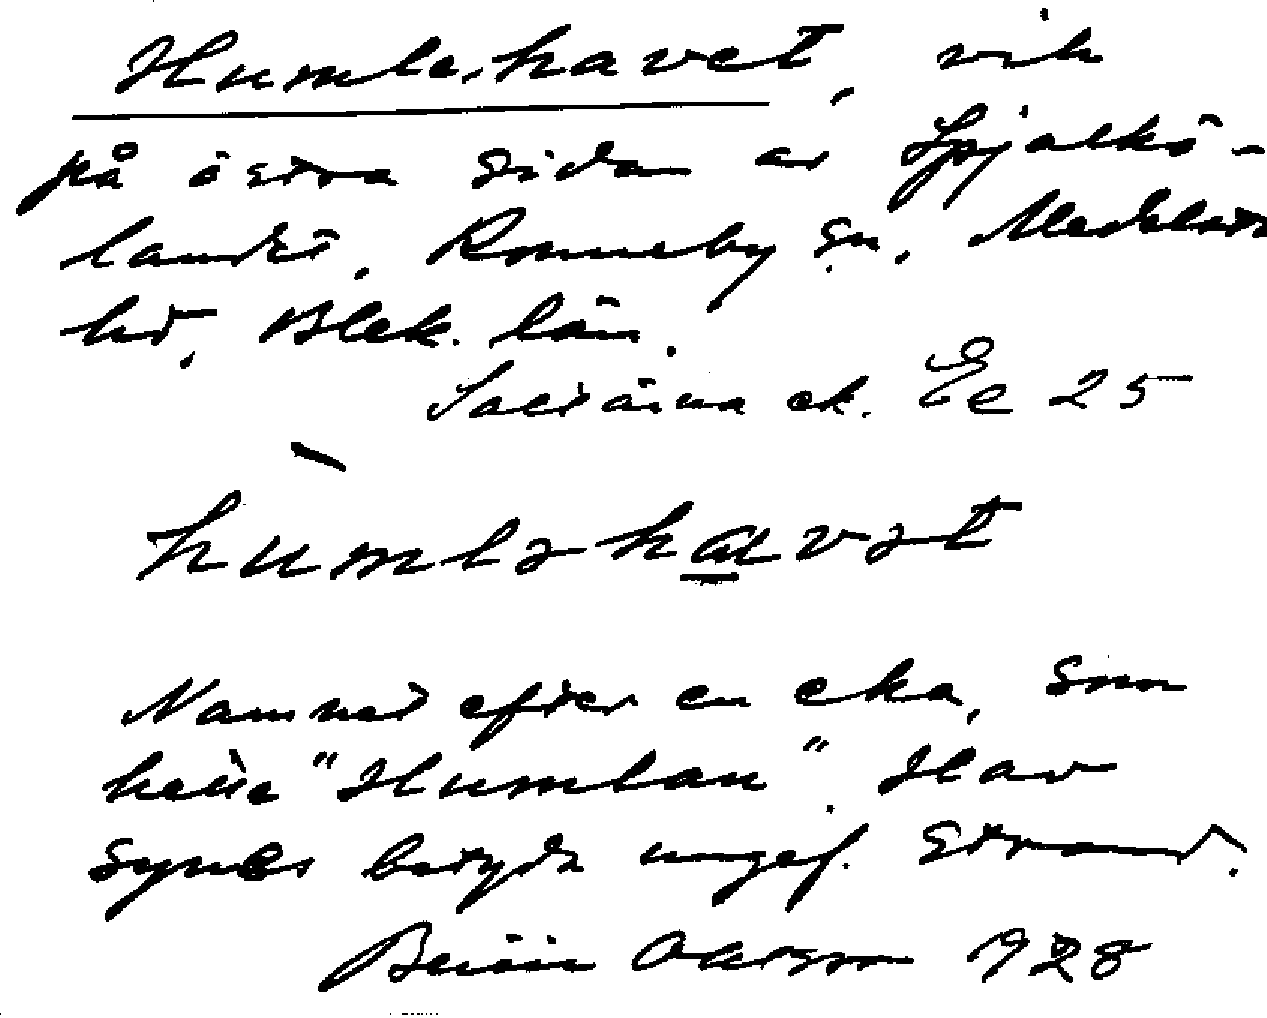 Humlehavet, vik
på östra sidan av Spjälkö-
landet. Ronneby sn. Medelsta
hd, Blek. län.
ek. Ee 25
humləhavət
Namnet efter en eka, som
hette "Humlan". Hav
synes betyda ungef. strand.
Bertil Olsson 1928